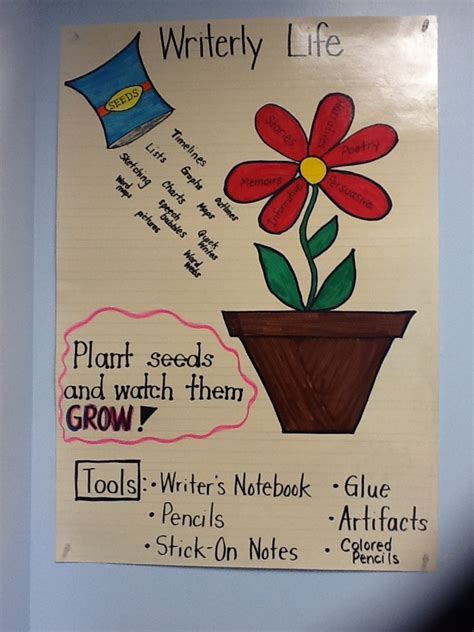 Writerly Life
SEEDS
Timelines
Lists
Graphs
Outlines
Sketching
Charts
Maps
Word
maps
Speech
bubbles
Quick
Writes
pictures
Word
Webs
Stories
Nonfiction
Poetry
Memoirs
Informative
Persuasive
Plant seeds
and watch them
GROW!
Tools:
• Writer's Notebook
• Glue
• Pencils
• Artifacts
• Stick-On Notes
• Colored
Pencils